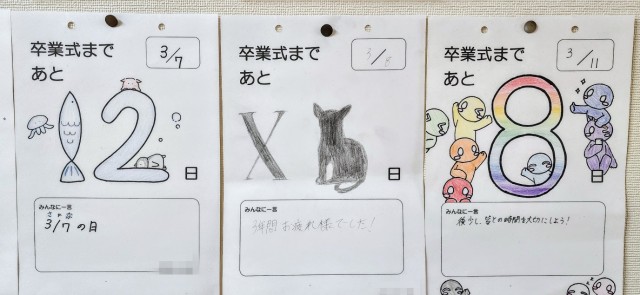 卒業式まで
あと
3/7
2
日
みんなに一言
さかな
3/7 の日
卒業式まで
あと
3/8
X
日
みんなに一言
3年間お疲れ様でーした!
卒業式まで
あと
3/11
8
日
みんなに一言
後少し、皆との時間を大切にしよう!